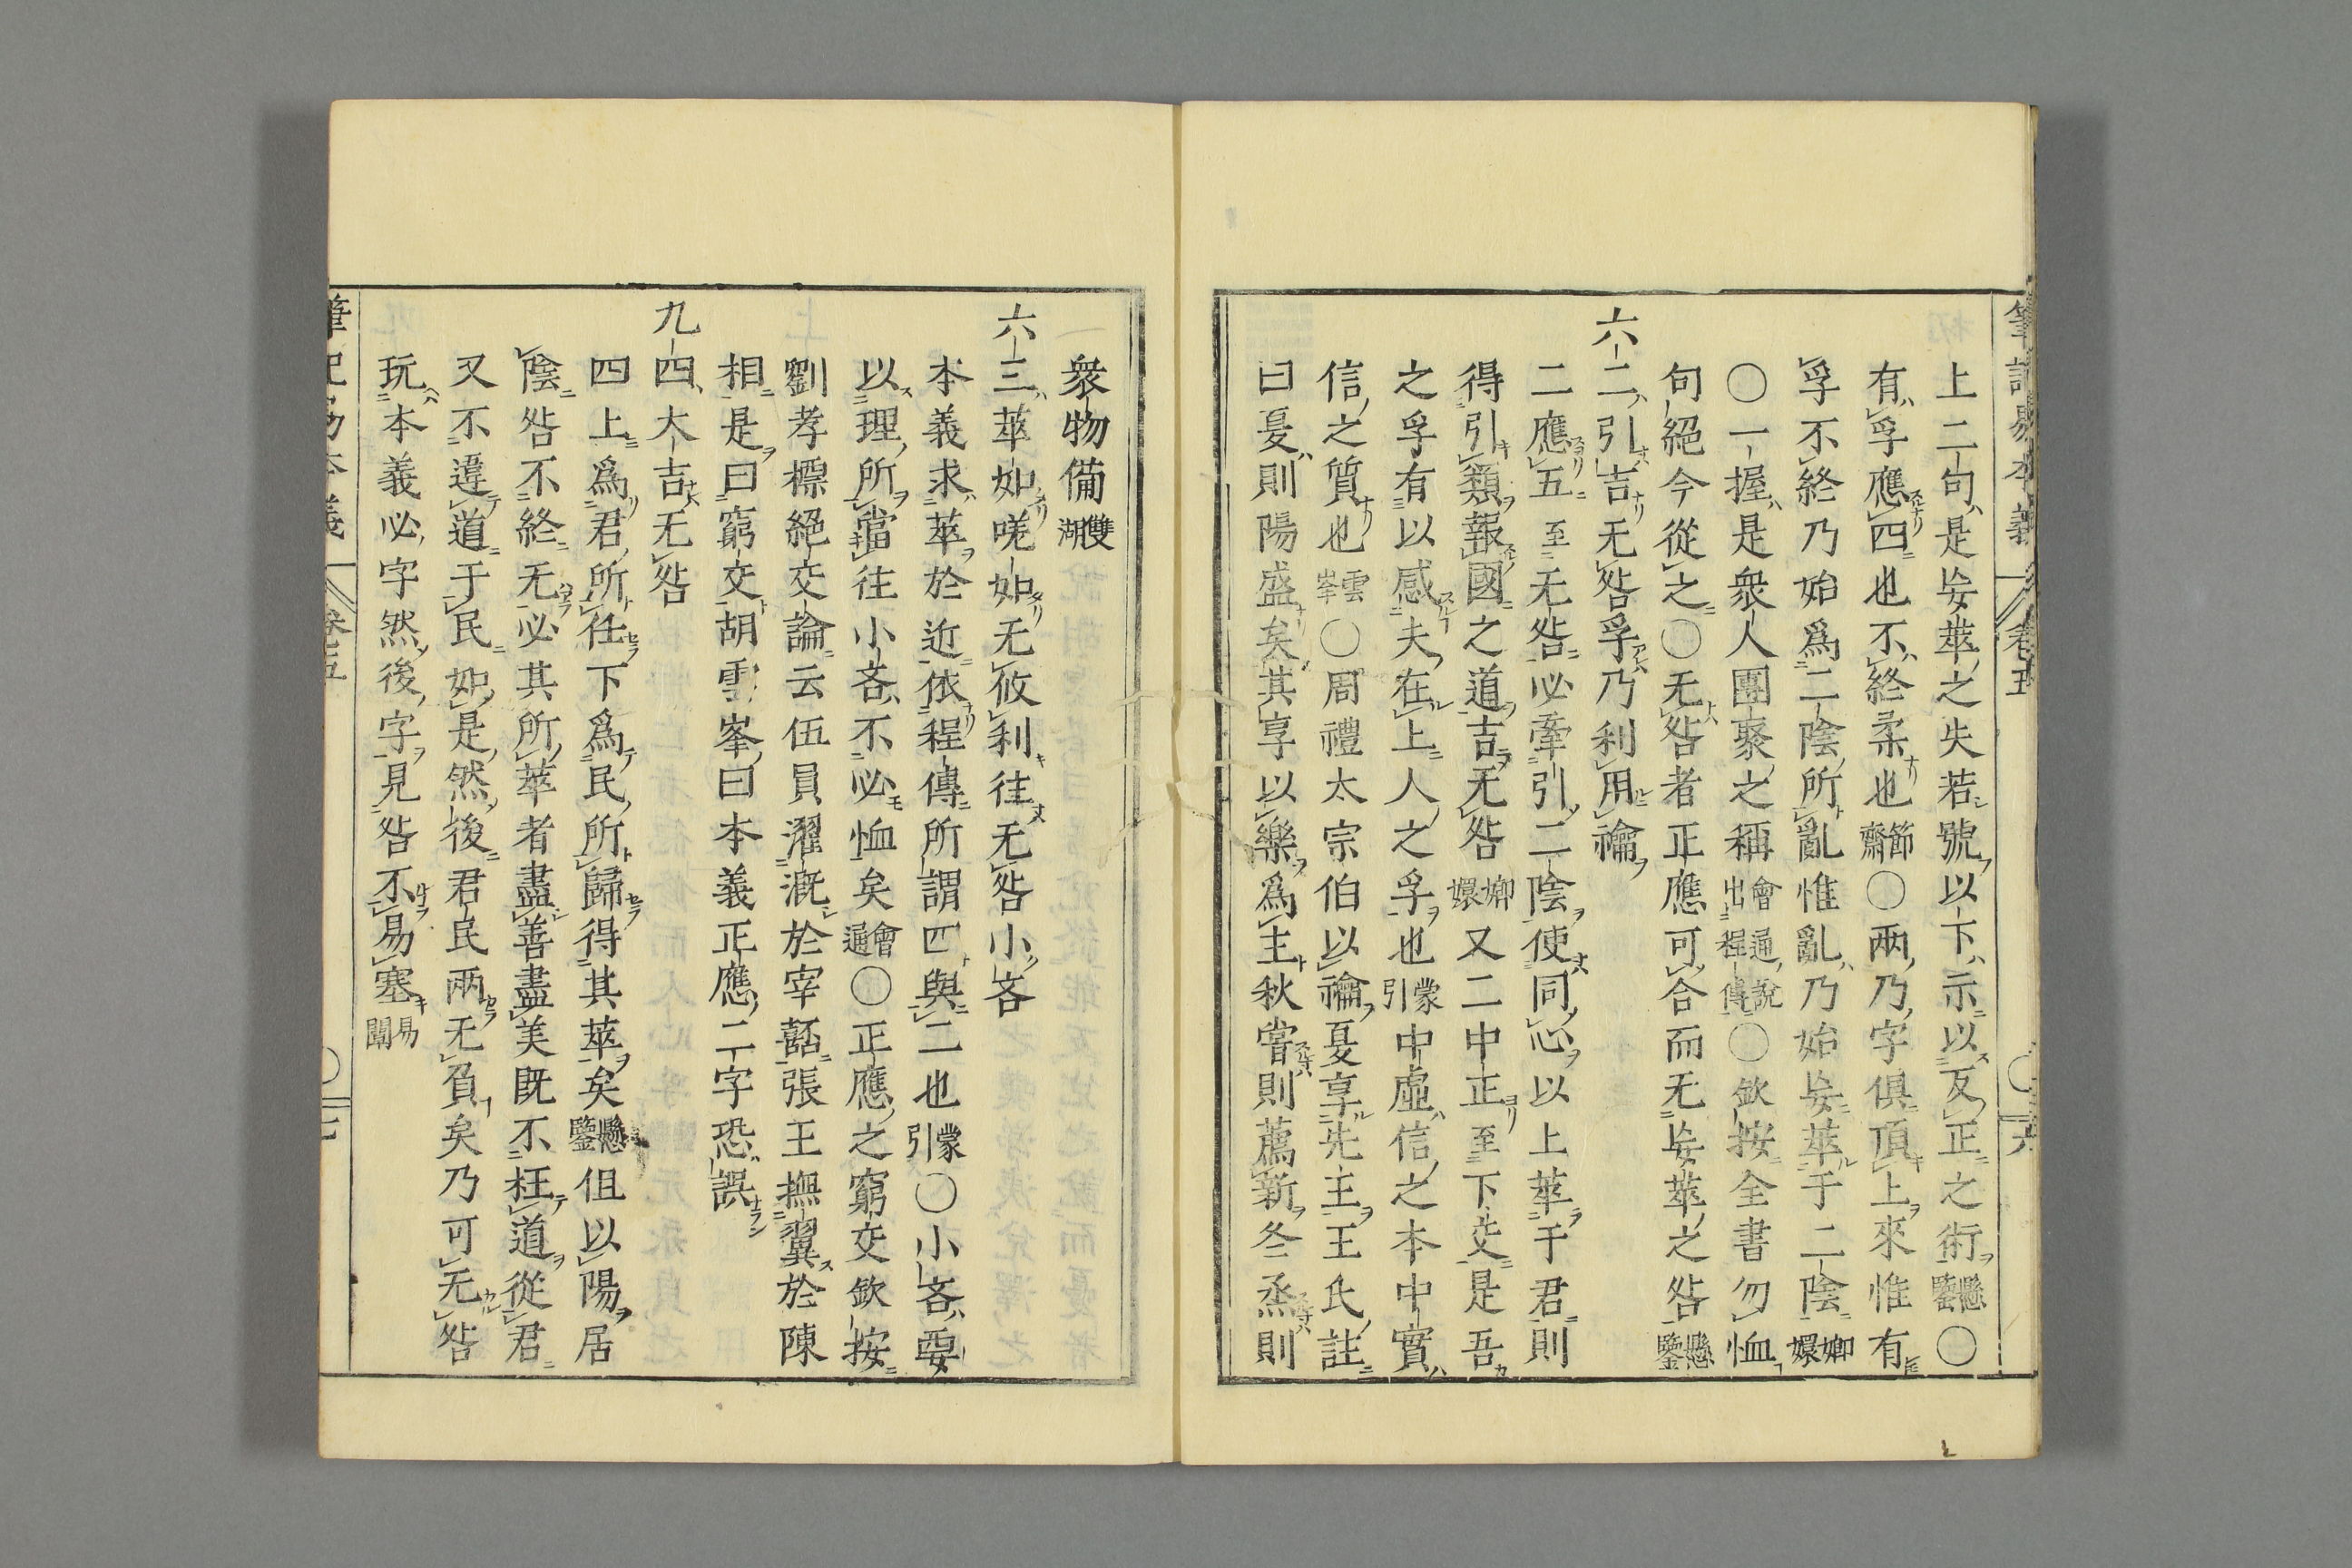 上二句是妄萃之失若號以下示以反正之術懸鑒〇
有孚應四也不終柔也節齋〇兩乃字俱頂上來惟有
孚不終乃始爲二陰所亂惟亂乃始妄萃于二陰嫏嬛
〇一握是衆人團聚之稱會通說出程傳〇欽按全書勿恤
句絕今從之〇无咎者正應可合而无妄萃之咎懸鑒
六二引吉无咎孚乃利用禴
二應五至无咎必牽引二陰使同心以上萃于君則
得引類報國之道吉无咎嫏嬛又二中正至下交是吾
之孚有以感夫在上人之孚也蒙引中虛信之本中實
信之質也雲峯〇周禮太宗伯以禴夏享先王王氏註
曰夏則陽盛矣其享以樂爲主秋嘗則薦新冬烝則
衆物備雙湖
六三萃如嗟如无攸利往无咎小吝
本義求萃於近依程傳所謂四與二也蒙引〇小吝要
以理所當往小吝不必恤矣會通〇正應之窮交欽按
劉孝標絕交論云伍員濯漑於宰嚭張王撫翼於陳
相是曰窮交胡雲峯曰本義正應二字恐誤
九四大吉无咎
四上爲君所任下爲民所歸得其萃矣懸鑒但以陽居
陰咎不終无必其所萃者盡善盡美既不枉道從君
又不違道于民如是然後君民兩无負矣乃可无咎
玩本義必字然後字見咎不易塞易闡